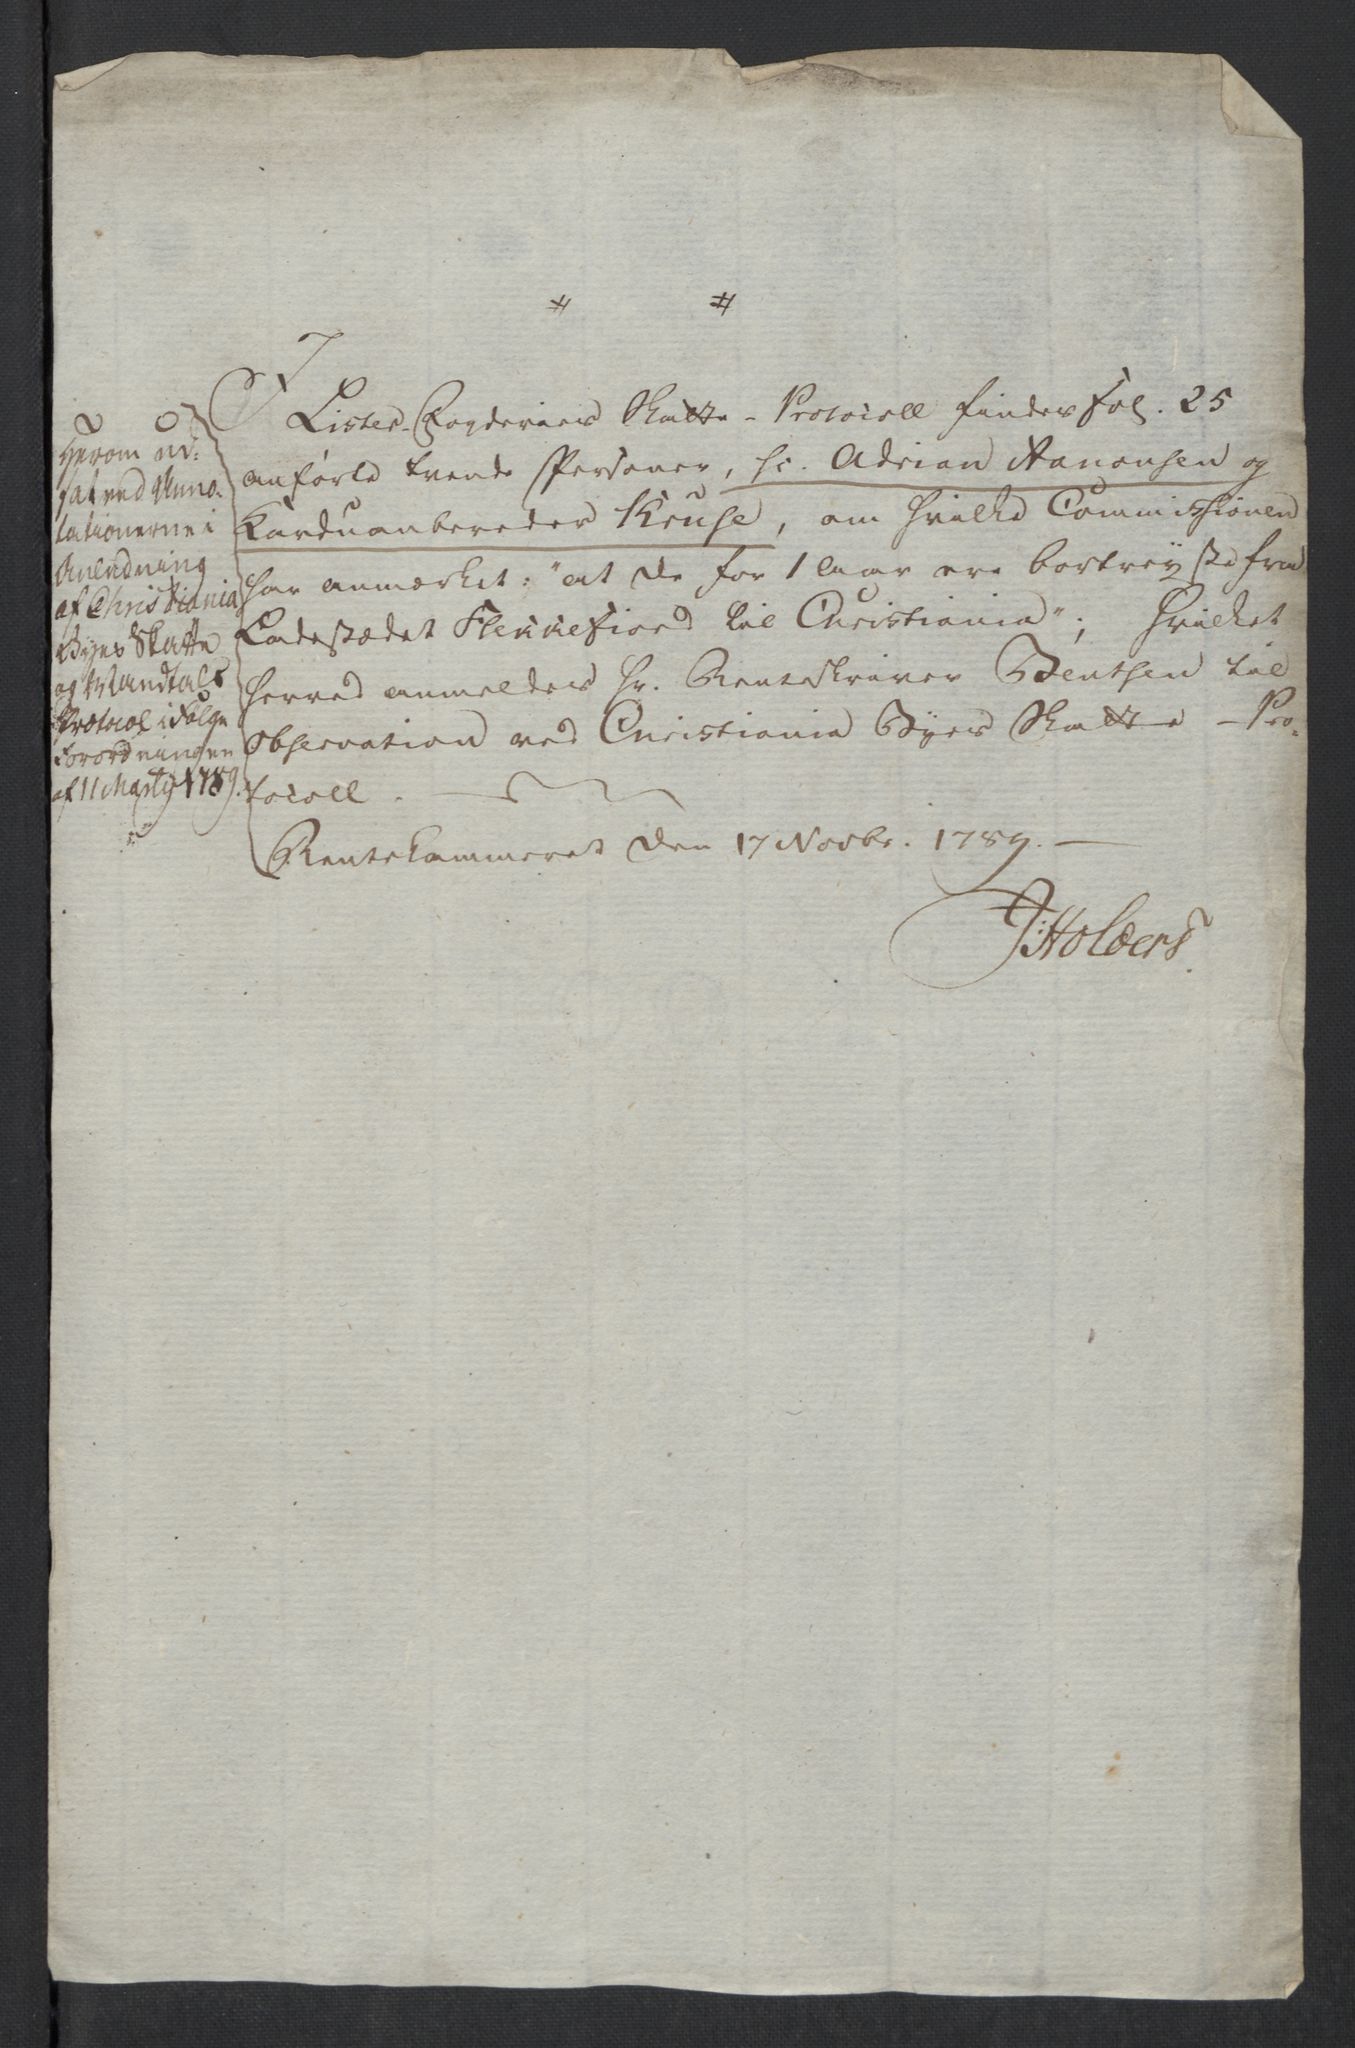 I
Lister-Fogderies Skatte-Protocoll findes Fol. 25
anförte tvende Personer, sc. Adrian Aanonsen og
Karduanbereder Kruse, om hvilke Commissionen
har anmærket: "at de for 1 Aar ere bortreyste fra
Ladestædet Flekkefiord til Christiania"; hvilket
herved anmeldes Hr. Renteskriver Benthen til
Observation ved Christiania Byes Skatte-Pro-
tocoll.
Rentekammeret den 17 Novbr. 1789.
J: Holbers
Herom ud-
sat ved Anno-
tationerne i
Anledning
af Christiania
Byes Skatte
og Mandtals
Protocol i Følge
Forordningen
af 11 Martij 1789.